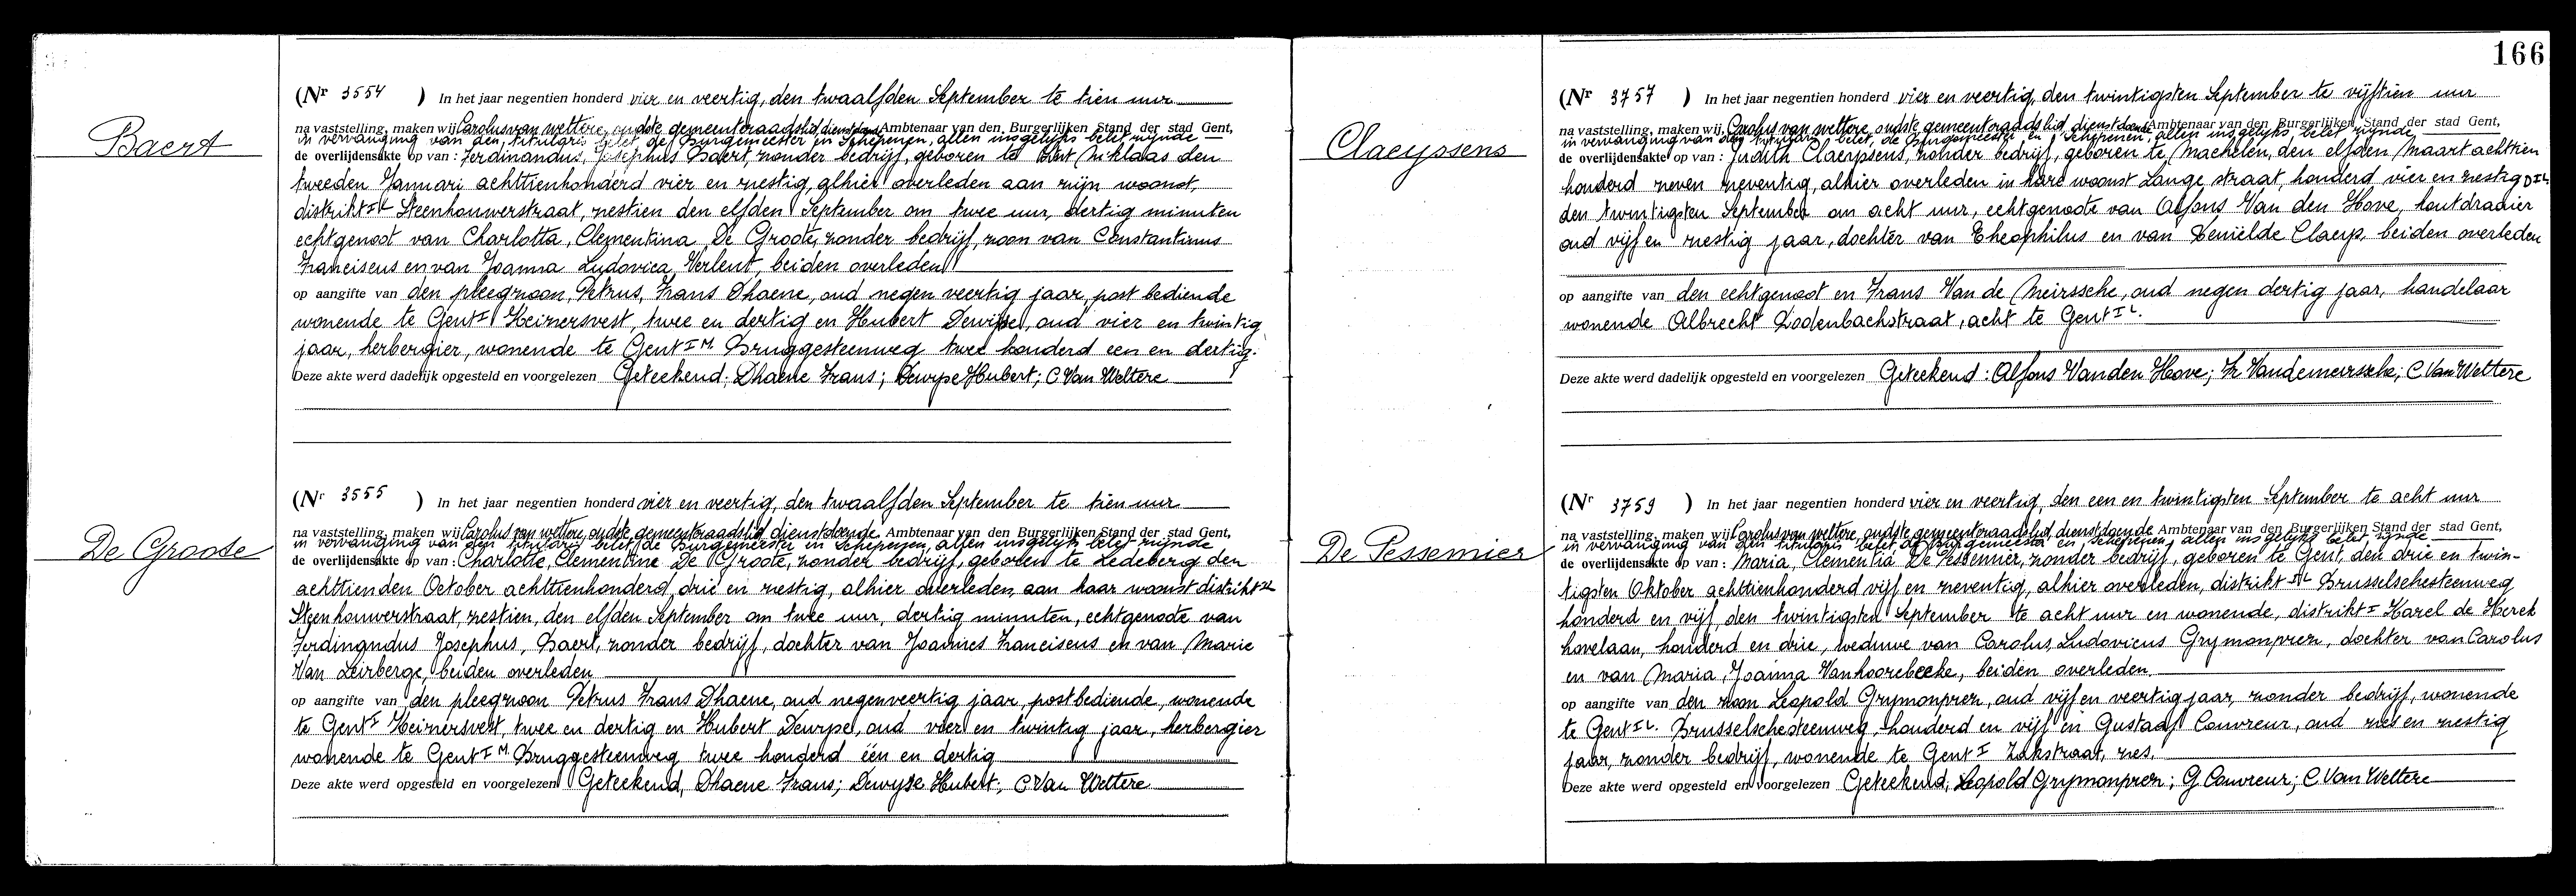 Baert
(Nr 3554 ) In het jaar negentien honderd vier en veertig, den twaalfden September te tien uur
na vaststelling, maken wij Carolus van Wettere, oudste gemeenteraadslid, dienstdoend Ambtenaar van den Burgerlijken Stand der stad Gent,
in vervanging van den titularis belet, de Burgemeester en Schepenen, allen insgelijks belet zijnde
de overlijdensakte op van : Ferdinandus, Josephus Baert, zonder bedrijf, geboren te Sint Niklaas den
tweeden Januari achttienhonderd vier en zestig, alhier overleden aan zijn woonst,
distrikt I L Steenhouwerstraat, zestien den elfden September om twee uur, dertig minuten
echtgenoot van Charlotta, Clementina De Groote, zonder bedrijf, zoon van Constantinus
Franciscus en van Joanna Ludovica Verlent, beiden overleden
op aangifte van den pleegzoon, Petrus, Frans Dhaene, oud negen veertig jaar, post bediende
wonende te Gent I Keizersvest, twee en dertig en Hubert Dewype, oud vier en twintig
jaar, herbergier, wonende te Gent I M. Bruggesteenweg twee honderd een en dertig.
Deze akte werd dadelijk opgesteld en voorgelezen Geteekend; Dhaene Frans; Hubert; C Van Wettere
De Groote
(Nr 3555 ) In het jaar negentien honderd vier en veertig, den twaalfden September te tien uur
na vaststelling, maken wij Carolus van Wettere, oudste gemeenteraadslid dienstdoende Ambtenaar van den Burgerlijken Stand der stad Gent,
in vervanging van den titularis belet, de Burgemeester en Schepenen, allen insgelijks belet zijnde
de overlijdensakte op van : Charlotte, Clementine De Groote, zonder bedrijf, geboren te Ledeberg den
achttienden October achttienhonderd drie en zestig, alhier overleden, aan haar woonst distrikt
Steenhouwerstraat, zestien, den elfden September om twee uur, dertig minuten, echtgenoote van
Ferdinandus Josephus, Baert, zonder bedrijf, dochter van Joannes Franciscus en van Marie
Van Leirberge, beiden overleden
op aangifte van den pleegzoon Petrus Frans Dhaene, oud negenveertig jaar, postbediende, wonende
te Gent I Keizersvest, twee en dertig en Hubert Dewype, oud vier en twintig jaar, herbergier
wonende te Gent I M. Bruggesteenweg twee honderd één en dertig
Deze akte werd opgesteld en voorgelezen Geteekend, Dhaene Frans; Hubert; C Van Wettere
166
Claeyssens
(Nr 3757 ) In het jaar negentien honderd vier en veertig, den twintigsten September te vijftien uur
na vaststelling, maken wij, Carolus van Wettere, oudste gemeenteraadslid, dienstdoende Ambtenaar van den Burgerlijken Stand der stad Gent,
in vervanging van den titularis belet, de Burgemeester en Schepenen, allen insgelijks belet zijnde
de overlijdensakte op van : Judith Claeyssens, zonder bedrijf, geboren te Machelen, den elfden Maart achttien
honderd zeven zeventig, alhier overleden in hare woonst Lange straat, honderd vier en zestig D I L
den twintigsten September om acht uur, echtgenoote van Alfons Van den Hove, houtdraaier
oud vijf en zestig jaar, dochter van Theophilus en van Claeys, beiden overleden
op aangifte van den echtgenoot en Frans Van de Meirssche, oud negen dertig jaar, handelaar
wonende Albrecht Rodenbachstraat, acht te Gent I L.
Deze akte werd dadelijk opgesteld en voorgelezen Geteekend : Alfons Vanden Hove; Fr Vandemeirssche; C. Van Wettere
De Pessemier
(Nr 3759 ) In het jaar negentien honderd vier en veertig, den een en twintigsten September te acht uur
na vaststelling, maken wij Carolus van Wettere, oudste gemeenteraadslid, dienstdoende Ambtenaar van den Burgerlijken Stand der stad Gent,
in vervanging van den titularis belet, de Burgemeester en Schepenen, allen insgelijks belet zijnde
de overlijdensakte op van : Maria, Clementia De Pessemier, zonder bedrijf, geboren te Gent, den drie en twin-
tigsten Oktober achttienhonderd vijf en zeventig, alhier overleden, distrikt I L Brusselschesteenweg
honderd en vijf, den twintigsten September te acht uur en wonende, distrikt I Karel de Kerck
hovelaan, honderd en drie, weduwe van Carolus, Ludovicus Grymonprez, dochter van Carolus
en van Maria, Joanna Vanhoorebeeke, beiden overleden.
op aangifte van den zoon Leopold Grymonprez, oud vijf en veertig jaar, zonder bedrijf, wonende
te Gent I L. Brusselschesteenweg, honderd en vijf en Gustaaf Couvreur, oud zes en zestig
jaar, zonder bedrijf, wonende te Gent I Zakstraat, zes.
Deze akte werd opgesteld en voorgelezen Geteekend; Leopold Grymonprez; G Couvreur; C Van Wettere